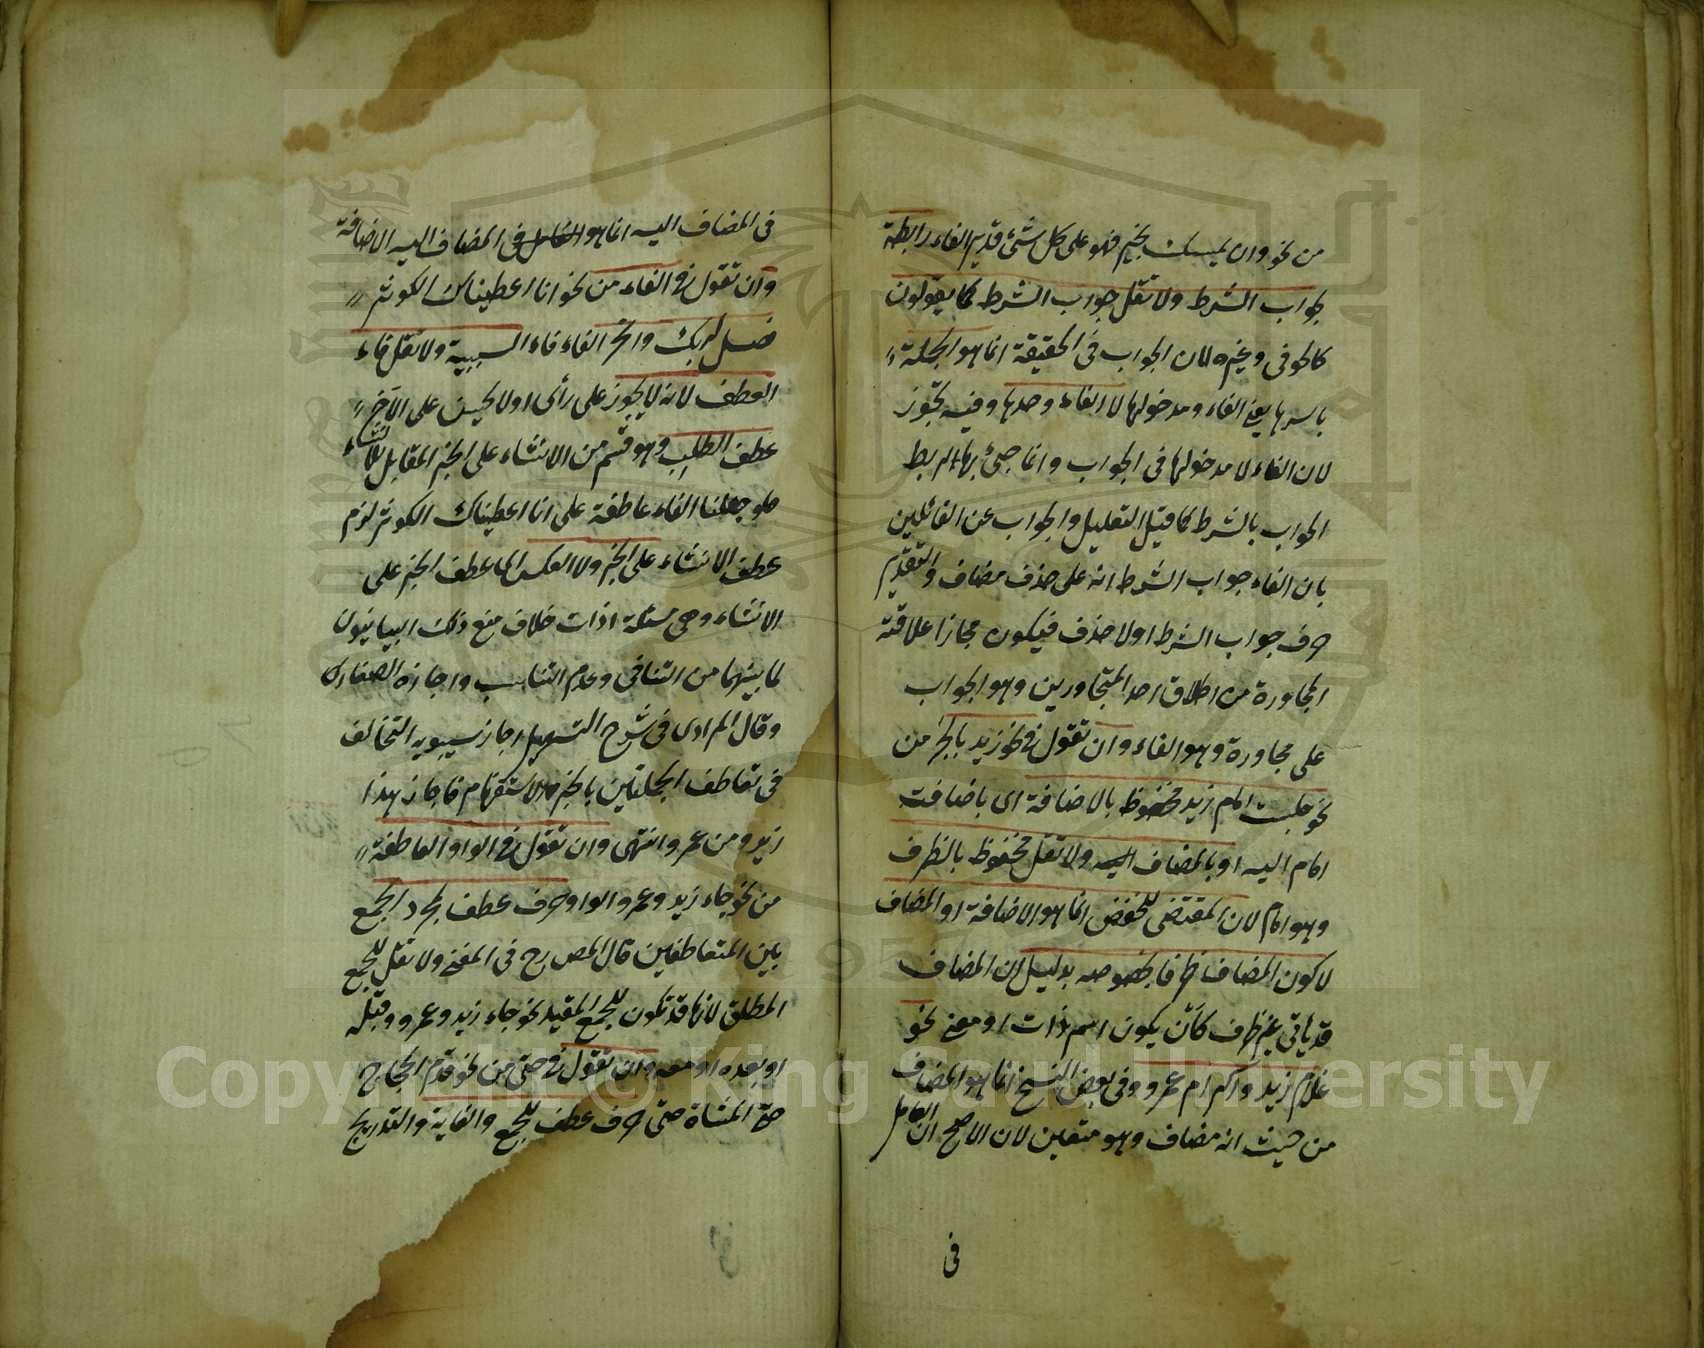 من نحو وان يمسسك بخير فهو على كل شئ قدير الفاء رابطة
لجواب الشرط ولا تقل جواب الشرط كما يقولون
كالحوفى وغيره لان الجواب فى الحقيقة انما هو الجملة
باسرها يعنى الفاء ومدخولها لا الفاء وحدها وفيه تجوز
لان الفاء لا مدخولها فى الجواب وانما جئ بها لربط
الجواب بالشرط كما قيل التعليل والجواب عن القائلين
بان الفاء جواب الشرط انه على حذف مضاف والتقدير
حرف جواب الشرط اولا حذف فيكون مجازا علاقته
المجاورة من اطلاق احد المتجاورين وهو الجواب
على مجاوره وهو الفاء وان تقول فى نحو زيد بالجر من
نحو جلست امام زيد مخفوظ بالاضافة اى باضافت
امام اليه او بالمضاف ولا تقل مخفوظ بالظرف
وهو امام لان المقتضى للخفض انما هو الاضافة او المضاف
لا كون المضاف ظرفا بخصوصه بدليل ان المضاف
قد ياتى غير ظرف كأن يكون اسم ذات او معنى نحو
غلام زيد واكرام عمرو وفى بعض النسخ انما هو المضاف
من حيث انه مضاف وهو متعين لان الاصح ان العامل
فى
فى المضاف اليه انما هو فى المضاف اليه الاضافة
وان تقول فى الفاء من نحو انا اعطيناك الكوثر
فصل لربك وانحر الفاء فاء السببية ولا تقل فاء
العطف لانه لا يجوز على رأى اولا يحسن على الآخر
عطف الطلب وهو قسم من الانشاء على الخبر المقابل للانشاء
فلو جعلنا الفاء عاطفة على انا اعطيناك الكوثر لزم
عطف الانشاء على الخبر ولا العكس اى عطف الخبر على
الانشاء وهى مسئلة ذات خلاف منع ذلك البيانيون
لما بينهما من التنافى وعدم التناسب واجازه الصفار
وقال المرادى فى شرح التسهيل اجاز سيبويه التخالف
فى تعاطف الجملتين بالخبر والاستفهام فاجاز هذا
زيد ومن عمرو انتهى وان تقول فى الواو العاطفة
من نحو جاء زيد وعمرو الواو حرف عطف لمجرد الجمع
بين المتعاطفين قال المص رح فى المغنى ولا تقل للجمع
المطلق لانها قد تكون للجمع المقيد نحو جاء زيد وعمرو وقبله
او بعده او معه وان تقول فى حتى من نحو قدم الحجاج
حتى المشاة حتى حرف عطف للجمع والغاية والتدريج
Copyright © King Saud University